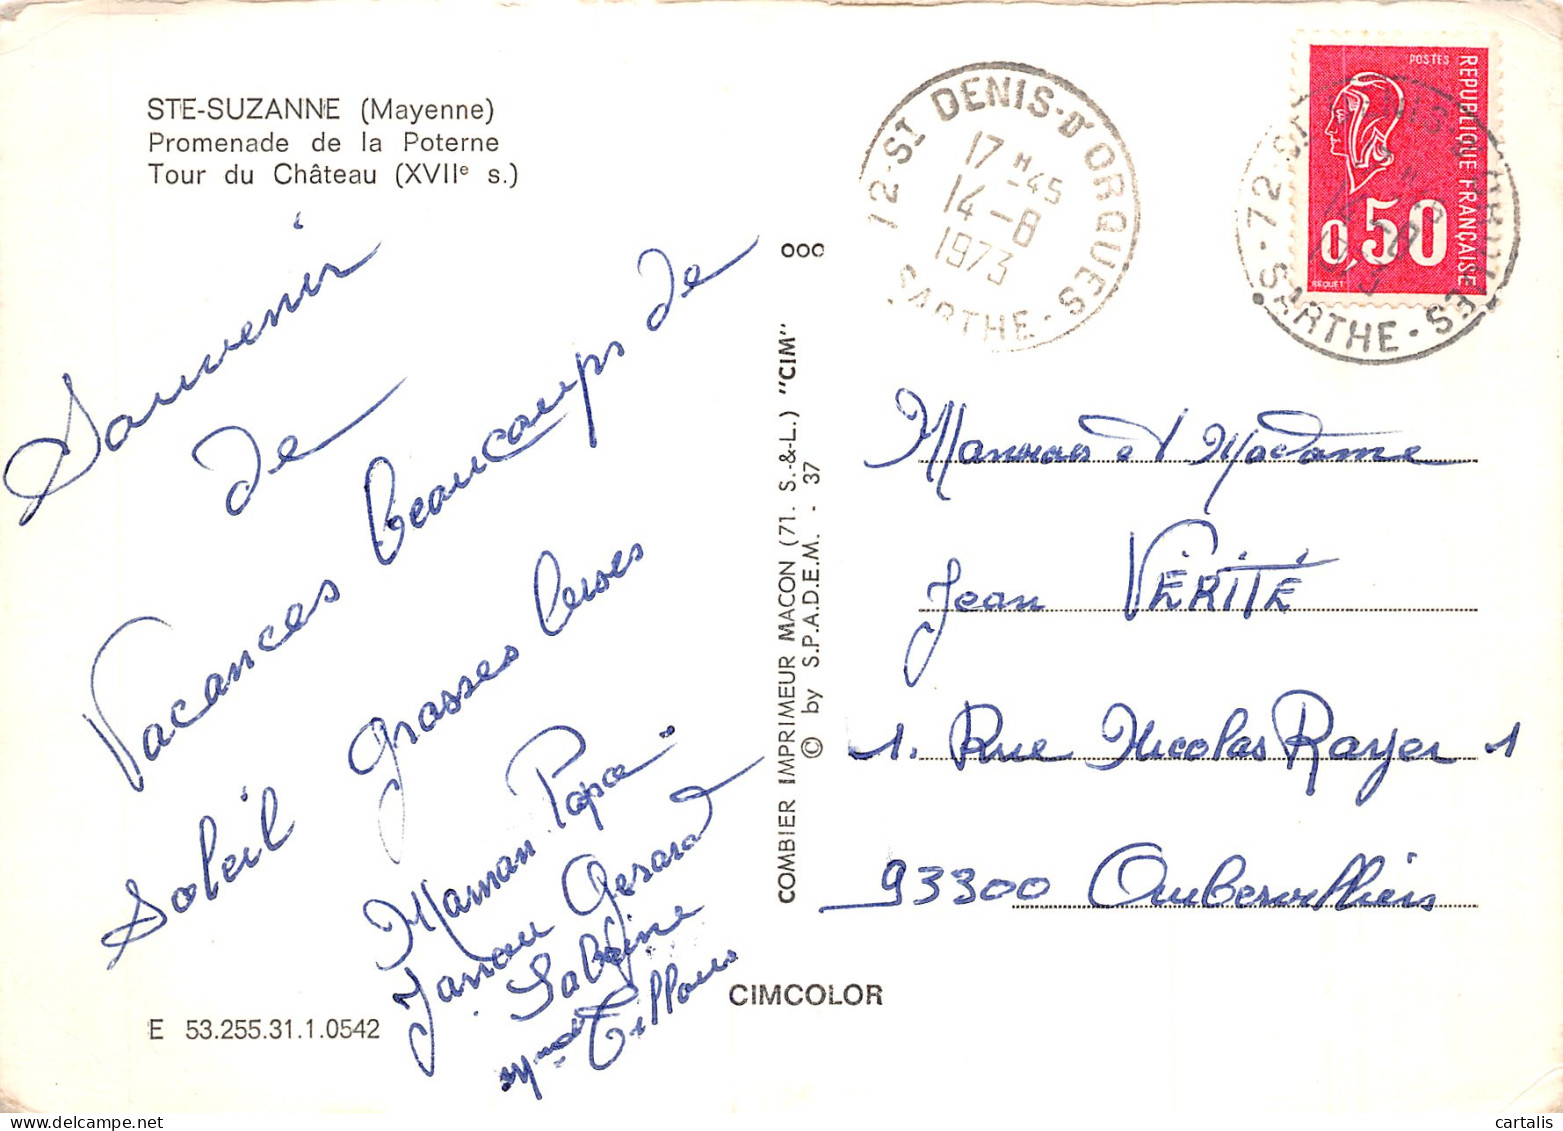 STE-SUZANNE (Mayenne)
Promenade de la Poterne
Tour du Château (XVIIe s.)
Souvenir
de
Vacances beaucoups de
Soleil grosses bises
Maman Papa
Gerard
Sabine
E 53.255.31.1.0542
CIMCOLOR
COMBIER IMPRIMEUR MACON (71. S.-&-L.) "CIM"
© by S.P.A.D.E.M. - 37
72-ST DENIS-D'ORQUES
17H-45
14-8
1973
SARTHE
POSTES
REPUBLIQUE FRANÇAISE
0,50
BEQUET
72-ST DENIS-D'ORQUES
SARTHE
et Madame
Jean VÉRITÉ
1. Rue Nicolas Rayer 1
93300 Aubervilliers
cartalis